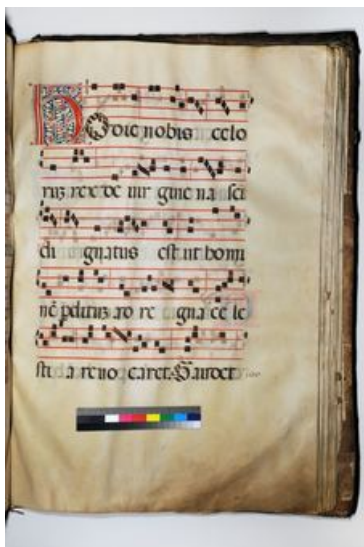 Hodie nobis celo
rum rex de uir gine na sci
di gnatus est ut homi
nē pditum ad re gna ce le
sti a reuo caret Gaudet